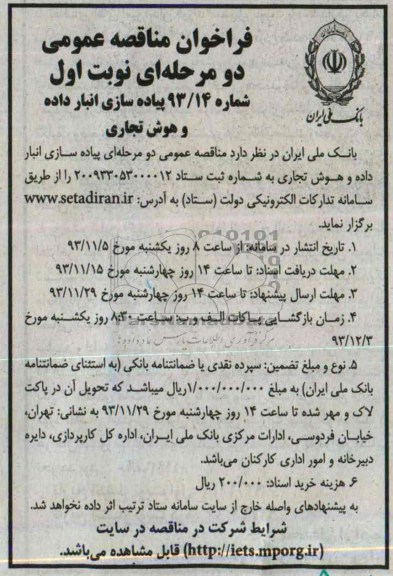 فراخوان مناقصه عمومی
دو مرحله‌ای نوبت اول
شماره ۹۳/۱۴ پیاده سازی انبار داده
و هوش تجاری
بانک ملی ایران
بانک ملی ایران در نظر دارد مناقصه عمومی دو مرحله‌ای پیاده سازی انبار
داده و هوش تجاری به شماره ثبت ستاد ۲۰۰۹۳۳۰۵۳۰۰۰۰۱۲ را از طریق
سامانه تدارکات الکترونیکی دولت (ستاد) به آدرس: www.setadiran.ir
برگزار نماید.
۱. تاریخ انتشار در سامانه: از ساعت ۸ روز یکشنبه مورخ ۹۳/۱۱/۵
۲. مهلت دریافت اسناد: تا ساعت ۱۴ روز چهارشنبه مورخ ۹۳/۱۱/۱۵
۳. مهلت ارسال پیشنهاد: تا ساعت ۱۴ روز چهارشنبه مورخ ۹۳/۱۱/۲۹
۴. زمان بازگشایی پاکات الف و ب: ساعت ۸:۳۰ روز یکشنبه مورخ
۹۳/۱۲/۳
۵. نوع و مبلغ تضمین: سپرده نقدی یا ضمانتنامه بانکی (به استثنای ضمانتنامه
بانک ملی ایران) به مبلغ ۱/۰۰۰/۰۰۰/۰۰۰ریال میباشد که تحویل آن در پاکت
لاک و مهر شده تا ساعت ۱۴ روز چهارشنبه مورخ ۹۳/۱۱/۲۹ به نشانی: تهران،
خیابان فردوسی، ادارات مرکزی بانک ملی ایران، اداره کل کارپردازی، دایره
دبیرخانه و امور اداری کارکنان می‌باشد.
۶. هزینه خرید اسناد: ۲۰۰/۰۰۰ ریال
به پیشنهادهای واصله خارج از سایت سامانه ستاد ترتیب اثر داده نخواهد شد.
شرایط شرکت در مناقصه در سایت
(http://iets.mporg.ir) قابل مشاهده می‌باشد.